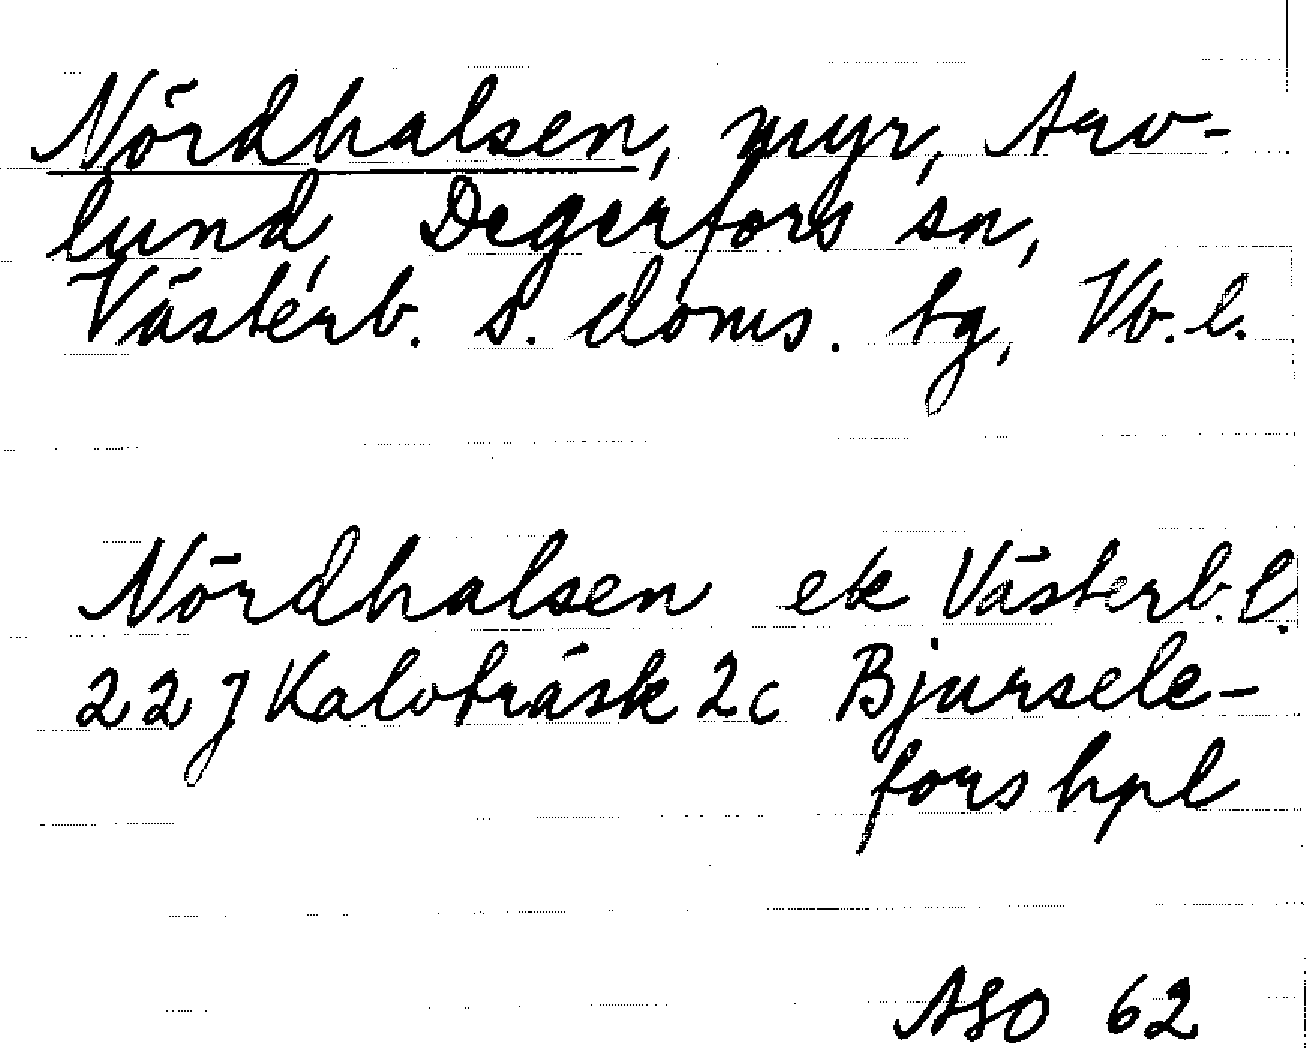 Nördhalsen, myr, Arv-
lund, Degerfors sn,
Västerb. s. doms. tg, Vb. l.
Nördhalsen ek Västerb. l.
22 J Kalvträsk 2c Bjursele-
fors hpl
ASO 62